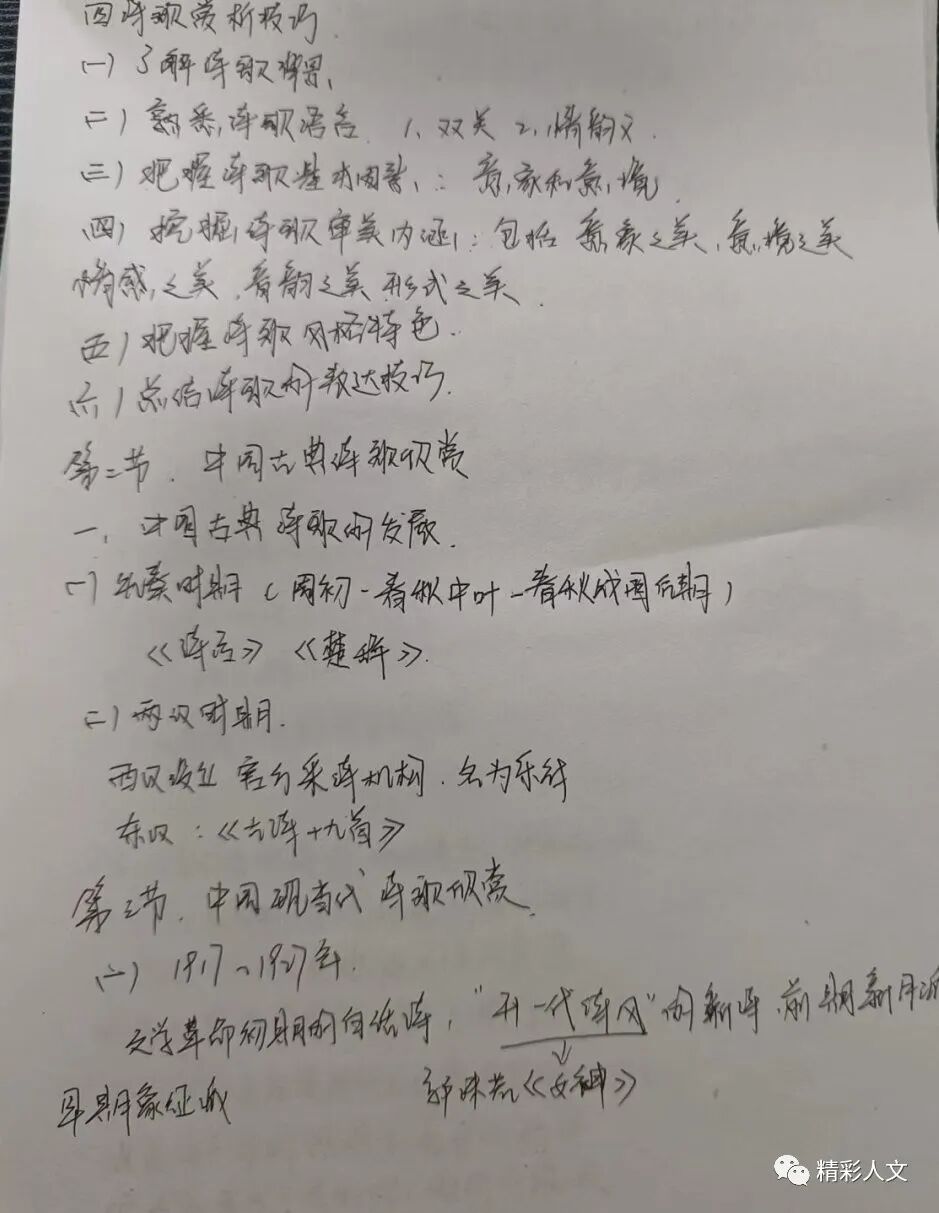 四诗歌赏析技巧
(一)了解诗歌背景、
(二)熟悉诗歌语言 1、双关 2、情韵义.
(三)把握诗歌基本因素:意象和意境
(四)挖掘诗歌审美内涵:包括意象之美、意境之美
情感之美、音韵之美 形式之美.
(五)把握诗歌风格特色.
(六)总结诗歌的表达技巧.
第二节、中国古典诗歌欣赏
一、中国古典诗歌的发展.
(一)先秦时期(周初-春秋中叶-春秋战国后期)
《诗经》《楚辞》.
(二)两汉时期.
西汉设立官方采诗机构.名为乐府
东汉:《古诗十九首》
第三节、中国现当代诗歌欣赏
(一) 1917~1927年.
文学革命初期的白话诗,"开一代诗风"的新诗、前期新月派
早期象征派 郭沫若《女神》
精彩人文